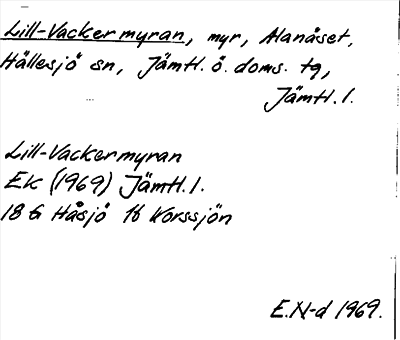 Lill-Vackermyran, myr, Alanäset,
Hällesjö sn, Jämtl. ö. doms. tg,
Jämtl. l.
Lill-Vackermyran
EK (1969) Jämtl. l.
18 G Håsjö 1b Korssjön
E.N-d 1969.